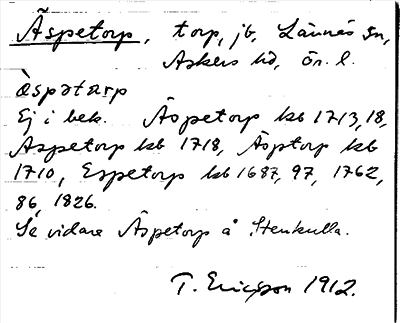 Äspetorp, torp, jb. Lännäs sn,
Askers hd, Ör. l.
àspətɷrp
Ej i bek. Äspetorp kb 1713, 18,
Aspetorp kb 1718, Äsptorp kb
1710, Espetorp kb 1687, 97, 1762,
86, 1826.
Se vidare Äspetorp å Stenkulla.
T. Ericsson 1912.